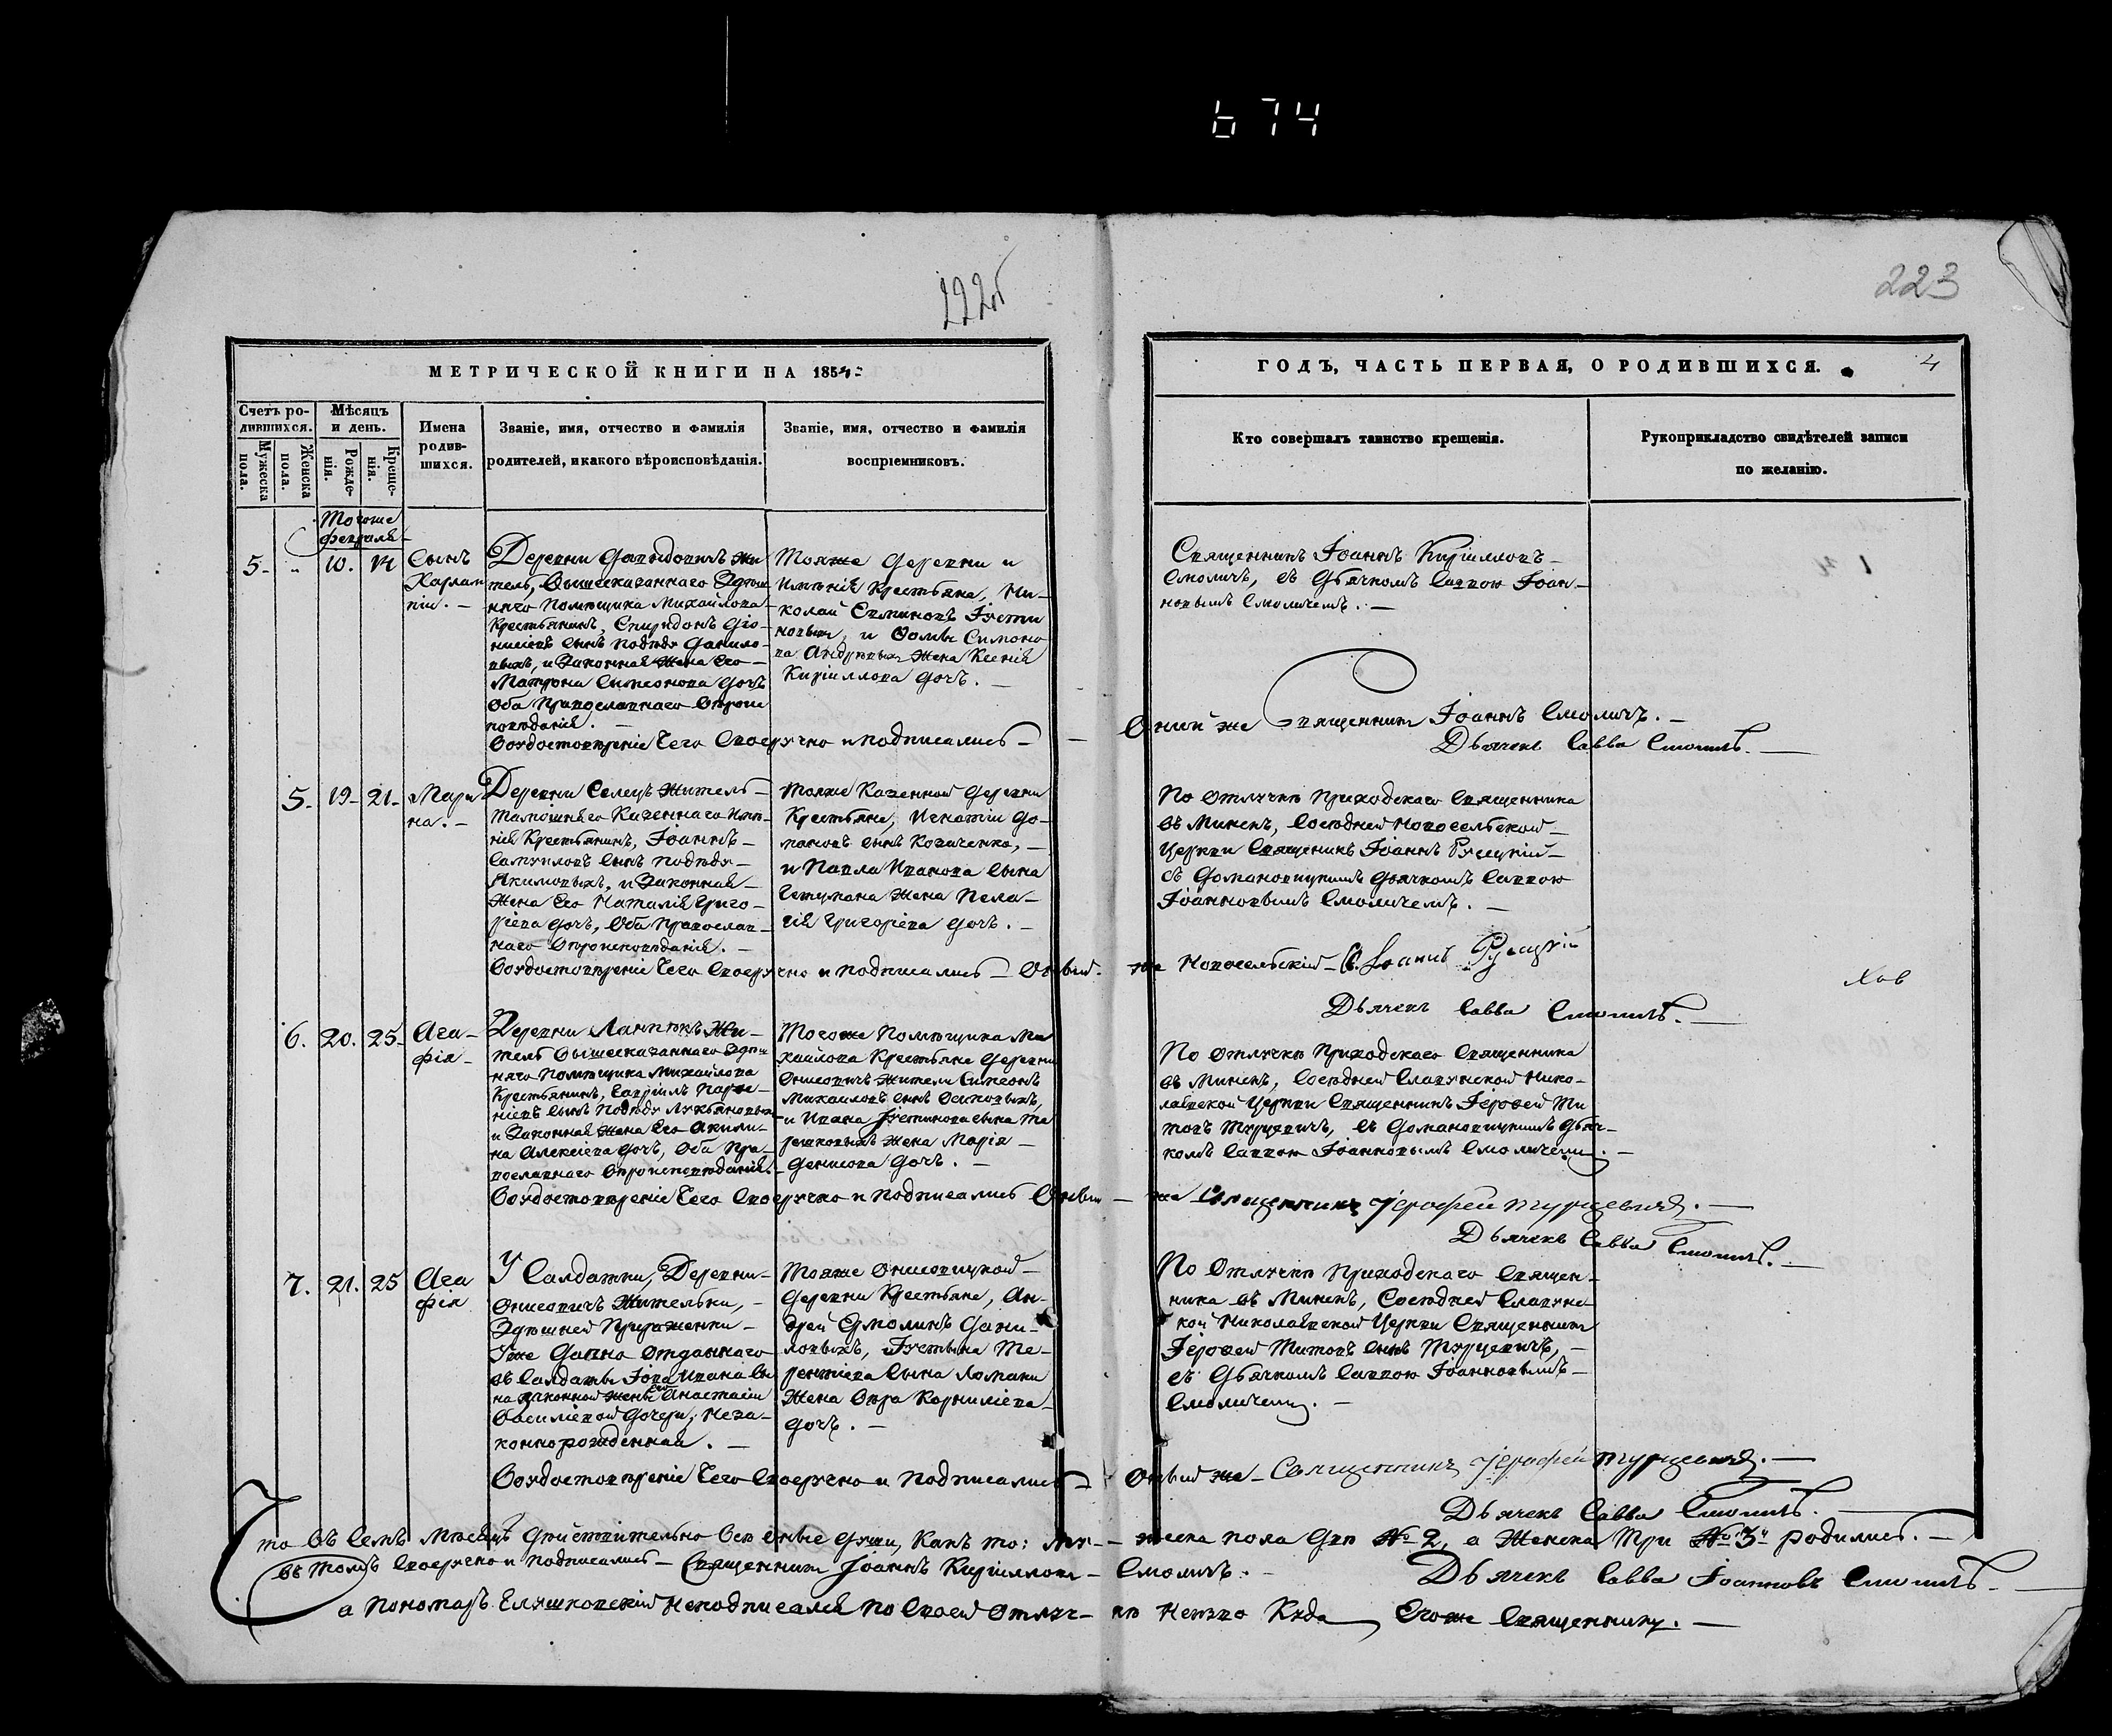 674
222об
223
МЕТРИЧЕСКОЙ КНИГИ НА 1854:
ГОДЪ, ЧАСТЬ ПЕРВАЯ, О РОДИВШИХСЯ.
4
Счетъ ро-
дившихся.
Мужеска
пола.
Женска
пола.
Мѣсяцъ
и день.
Рожде-
нія.
Креще-
нія.
Имена
родив-
шихся.
Званіе, имя, отчество и фамилія
родителей, и какого вѣроисповѣданія.
Званіе, имя, отчество и фамилія
воспріемниковъ.
Кто совершалъ таинство крещенія.
Рукоприкладство свидѣтелей записи
по желанію.
Тогоже
февраля
5-
"
10.
14
Сынъ
Харлам
пій. -
Деревни Давыдовичъ жи
тель, Вышесказаннаго Здѣш
няго Помѣщика Михайлова
Крестьянинъ, Спиридонъ Діо-
нисіевъ сынъ подпдя Данило-
выхъ, и Законная Жена Его -
Матрона Симеонова дочь
Оба Православнаго Вѣроис
повѣданія. -
Тояже Деревни и
Имѣнія Крестьяне, Ни-
колай Семиновъ Іусти
новыхъ, и Ѳомы Симоно
ва Жена Ксенія
Кириллова дочь. -
Священникъ Іоаннъ Кирилловъ -
Смоличъ, съ Дьячкомъ Саввою Іоан-
новымъ Смоличемъ. -
Воудостовѣреніе Чего Своеручно и подписались -
Оный же Священникъ Іоаннъ Смоличъ. -
Дьячекъ Савва Смоличъ. -
5.
19-
21-
Мари
на. -
Деревни Селецъ Житель -
Тамошняго Казеннаго Имѣ-
нія Крестьянинъ, Іоаннъ -
Самуиловъ сынъ подпдя -
Якимовыхъ, и Законная -
Жена Его Наталія Григо-
рьева дочь, Оба Православ-
наго Вѣроисповѣданія. -
Тояже Казенной Деревни
Крестьяне, Игнатій До-
мановъ сынъ Козаченко, -
и Павла Иванова сына
Гетмана Жена Пела-
гія Григоріева дочь. -
По Отлучкѣ Приходскаго Священника
въ Минскъ, Сосѣдней Новосельской -
Церкви Священникъ Іоаннъ Русецкій -
съ Домановицкимъ дьячкомъ Саввою
Іоанновымъ Смоличемъ. -
Воудостовѣреніе Чего Своеручно и подписались - Оный-
же Новосельскій - С. Іоаннъ Русецкій
Дьячекъ Савва Смоличъ. -
6.
20.
25-
Ага-
фія -
Деревни Жи-
тель Вышесказаннаго Здѣш
няго Помѣщика Михайлова
Крестьянинъ, Гавріилъ Парѳе-
ніевъ сынъ Подпдя Лукьяновыхъ
и Законная Жена Его Акили-
на Алексіева дочь, Оба Пра-
вославнаго Вѣроисповѣданія. -
Тогоже Помѣщика Ми
хайлова Крестьяне Деревни
Онисовичъ Жители Симеонъ
Михаиловъ сынъ Осиповыхъ,
и Ивана Іустинова сына Те
решковыхъ Жена Марія -
Денисова дочь. -
По Отлучкѣ Приходскаго Священника
въ Минскъ, Сосѣдней Славунской Нико-
лаевской Церкви Священникъ Іероѳей Ти
товъ Турцевичъ, съ Домановицкимъ Дьяч-
комъ Саввою Іоанновымъ Смоличемъ. -
Воудостовѣреніе Чего Своеручно и подписались Оный -
же Священникъ Іерофей Турцевичъ. -
Дьячекъ Савва Смоличъ. -
7.
21.
25
Ага
фія
У Солдатки, Деревни -
Онисовичъ Жительки, -
Здѣшней Прихоженки -
Уже Давно Отданнаго
въ Солдаты Іова Ивана сы
на Законной Жены Его Анастасіи
Василіевой Дочери, Неза-
коннорожденная. -
Тояже Онисовицкой -
Деревни Крестьяне, Ан-
дрей Ермолинъ Дани-
ловыхъ, Іустина Те-
рентіева Сына Ломаки
Жена Вѣра Корниліева
дочь. -
По Отлучкѣ Приходскаго Священ-
ника въ Минскъ, Сосѣдней Славунс-
кой Николаевской Церкви Священникъ
Іероѳей Титовъ сынъ Турцевичъ, -
съ Дьячкомъ Саввою Іоанновымъ -
Смоличемъ. -
Воудостовѣреніе Чего Своеручно и Подписались -
Оный же - Священникъ Іерофей Турцевичъ. -
Дьячекъ Савва Смоличъ. -
Что въ Семъ Мѣсяцѣ Дѣйствительно Всѣ оные Души, Какъ то: Му-жеска пола Два № 2, а Женска Три № 3" родились. -
въ томъ Своеручно и подписались - Священникъ Іоаннъ Кирилловъ - Смоличъ. - Дьячекъ Савва Іоанновъ Смоличъ. -
а Пономарь Еляшковскій Неподписался по Своей Отлуч-кѣ Невѣдо Куда Егоже Священнику. -